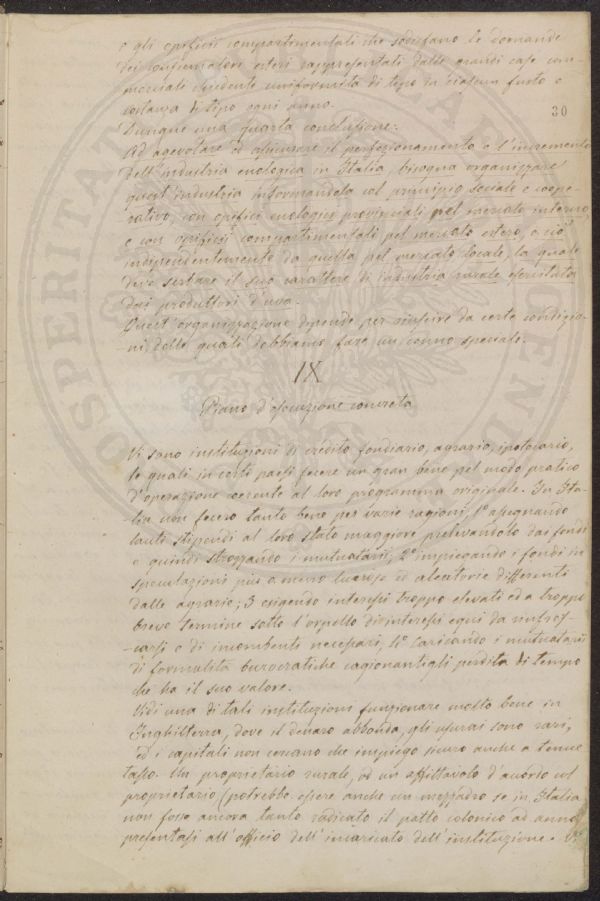 e gli opificii compartimentali che sodisfano le domande
dei consumatori esteri rappresentati dalle grandi case com-
merciale chiedente uniformità di tipo in ciascun fusto e
costanza di tipo ogni anno.
30
Dunque una quarta conclusione:
Ad agevolare ed assicurare il perfezionamento e l'incremento
dell'industria enologica in Italia, bisogna organizzare
quest'industria informandola col principio sociale e coope-
rativo, con opifici enologici provinciali pel mercato interno,
e con opificii compartimentali pel mercato estero, e ciò
indipendentemente da quella pel mercato locale, la quale
deve serbare il suo carattere di industria rurale esercitata
dai produttori d'uva.
Quest'organizzazione dipende per riuscire da certe condizio-
-ni delle quali dobbiamo fare un cenno speciale.
IX
Piano d'esecuzione concreta
Vi sono instituzioni di credito fondiario, agrario, ipotecario,
le quali in certi paesi fecero un gran bene pel modo pratico
d'operazione coerente al loro programma originale. In Ita-
-lia non fecero tanto bene per varie ragioni 1° assegnando
lauti stipendi al loro stato maggiore prelevandolo dai fondi
e quindi strozzando i mutuatarii, 2° impiegando i fondi in
speculazioni più o meno lucrose ed aleatorie differenti
dalle agrarie; 3 esigendo interessi troppo elevati ed a troppo
breve termine sotto l'orpello di interessi equi da
e di incombenti necessari, 4° caricando i mutuatarii
di formalità burocratiche cagionantigli perdita di tempo
che ha il suo valore.
Vidi una di tali instituzioni funzionare molto bene in
Inghilterra, dove il denaro abbonda, gli usurai sono rari,
ed i capitali non cercano che impiego sicuro anche a tenue
tasso. Un proprietario rurale, od un affittavolo d'accordo col
proprietario (potrebbe essere anche un mezzadro se in Italia
non fosse ancora tanto radicato il patto colonico ad anno)
presentasi all'officio dell'incaricato dell'instituzione.